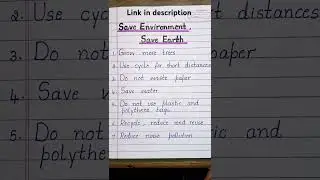 Link in description
Save Environment,
Save Earth
1. Grow more trees
2. Use cycle for short distances
3. Do not waste paper
4. Save water
5. Do not use plastic and
polythene bags
6. Recycle, reduce and reuse
7. Reduce noise pollution
2. Use cycle
distances
3. Do not
4. Save w
5. Do not
polythe
c and